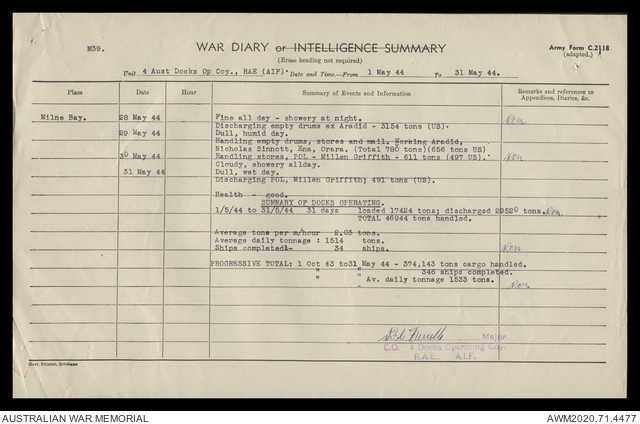 M39.
WAR DIARY or INTELLIGENCE SUMMARY
Army Form C.2118
(adapted.)
(Erase heading not required)
Unit 4 Aust Docks Op Coy., RAE (AIF). Date and Time.—From 1 May 44 To 31 May 44.
Place Date Hour Summary of Events and Information Remarks and references to Appendices, Diaries, &c.
Milne Bay. 28 May 44 Fine all day - showery at night.
Discharging empty drums ex Aradid - 3154 tons (US).
29 May 44 Dull, humid day.
Handling empty drums, stores and mail. Working Aradid,
Nicholas Sinnott, Ena, Orara. (Total 780 tons)(656 tons US)
30 May 44 Handling stores, POL - Millen Griffith - 611 tons (497 US).
Cloudy, showery allday.
31 May 44 Dull, wet day.
Discharging POL, Millen Griffith; 491 tons (US).
Health - good.
SUMMARY OF DOCKS OPERATING.
1/5/44 to 31/5/44 31 days loaded 17424 tons; discharged 29520 tons.
TOTAL 46944 tons handled.
Average tons per m/hour 2.03 tons.
Average daily tonnage : 1514 tons.
Ships completed:- 34 ships.
PROGRESSIVE TOTAL: 1 Oct 43 to31 May 44 - 374,143 tons cargo handled.
" " 346 ships completed.
" " Av. daily tonnage 1533 tons.
Major
C.O. 4 Docks Operating Coy.
R.A.E. A.I.F.
Govt. Printer, Brisbane
AUSTRALIAN WAR MEMORIAL AWM2020.71.4477